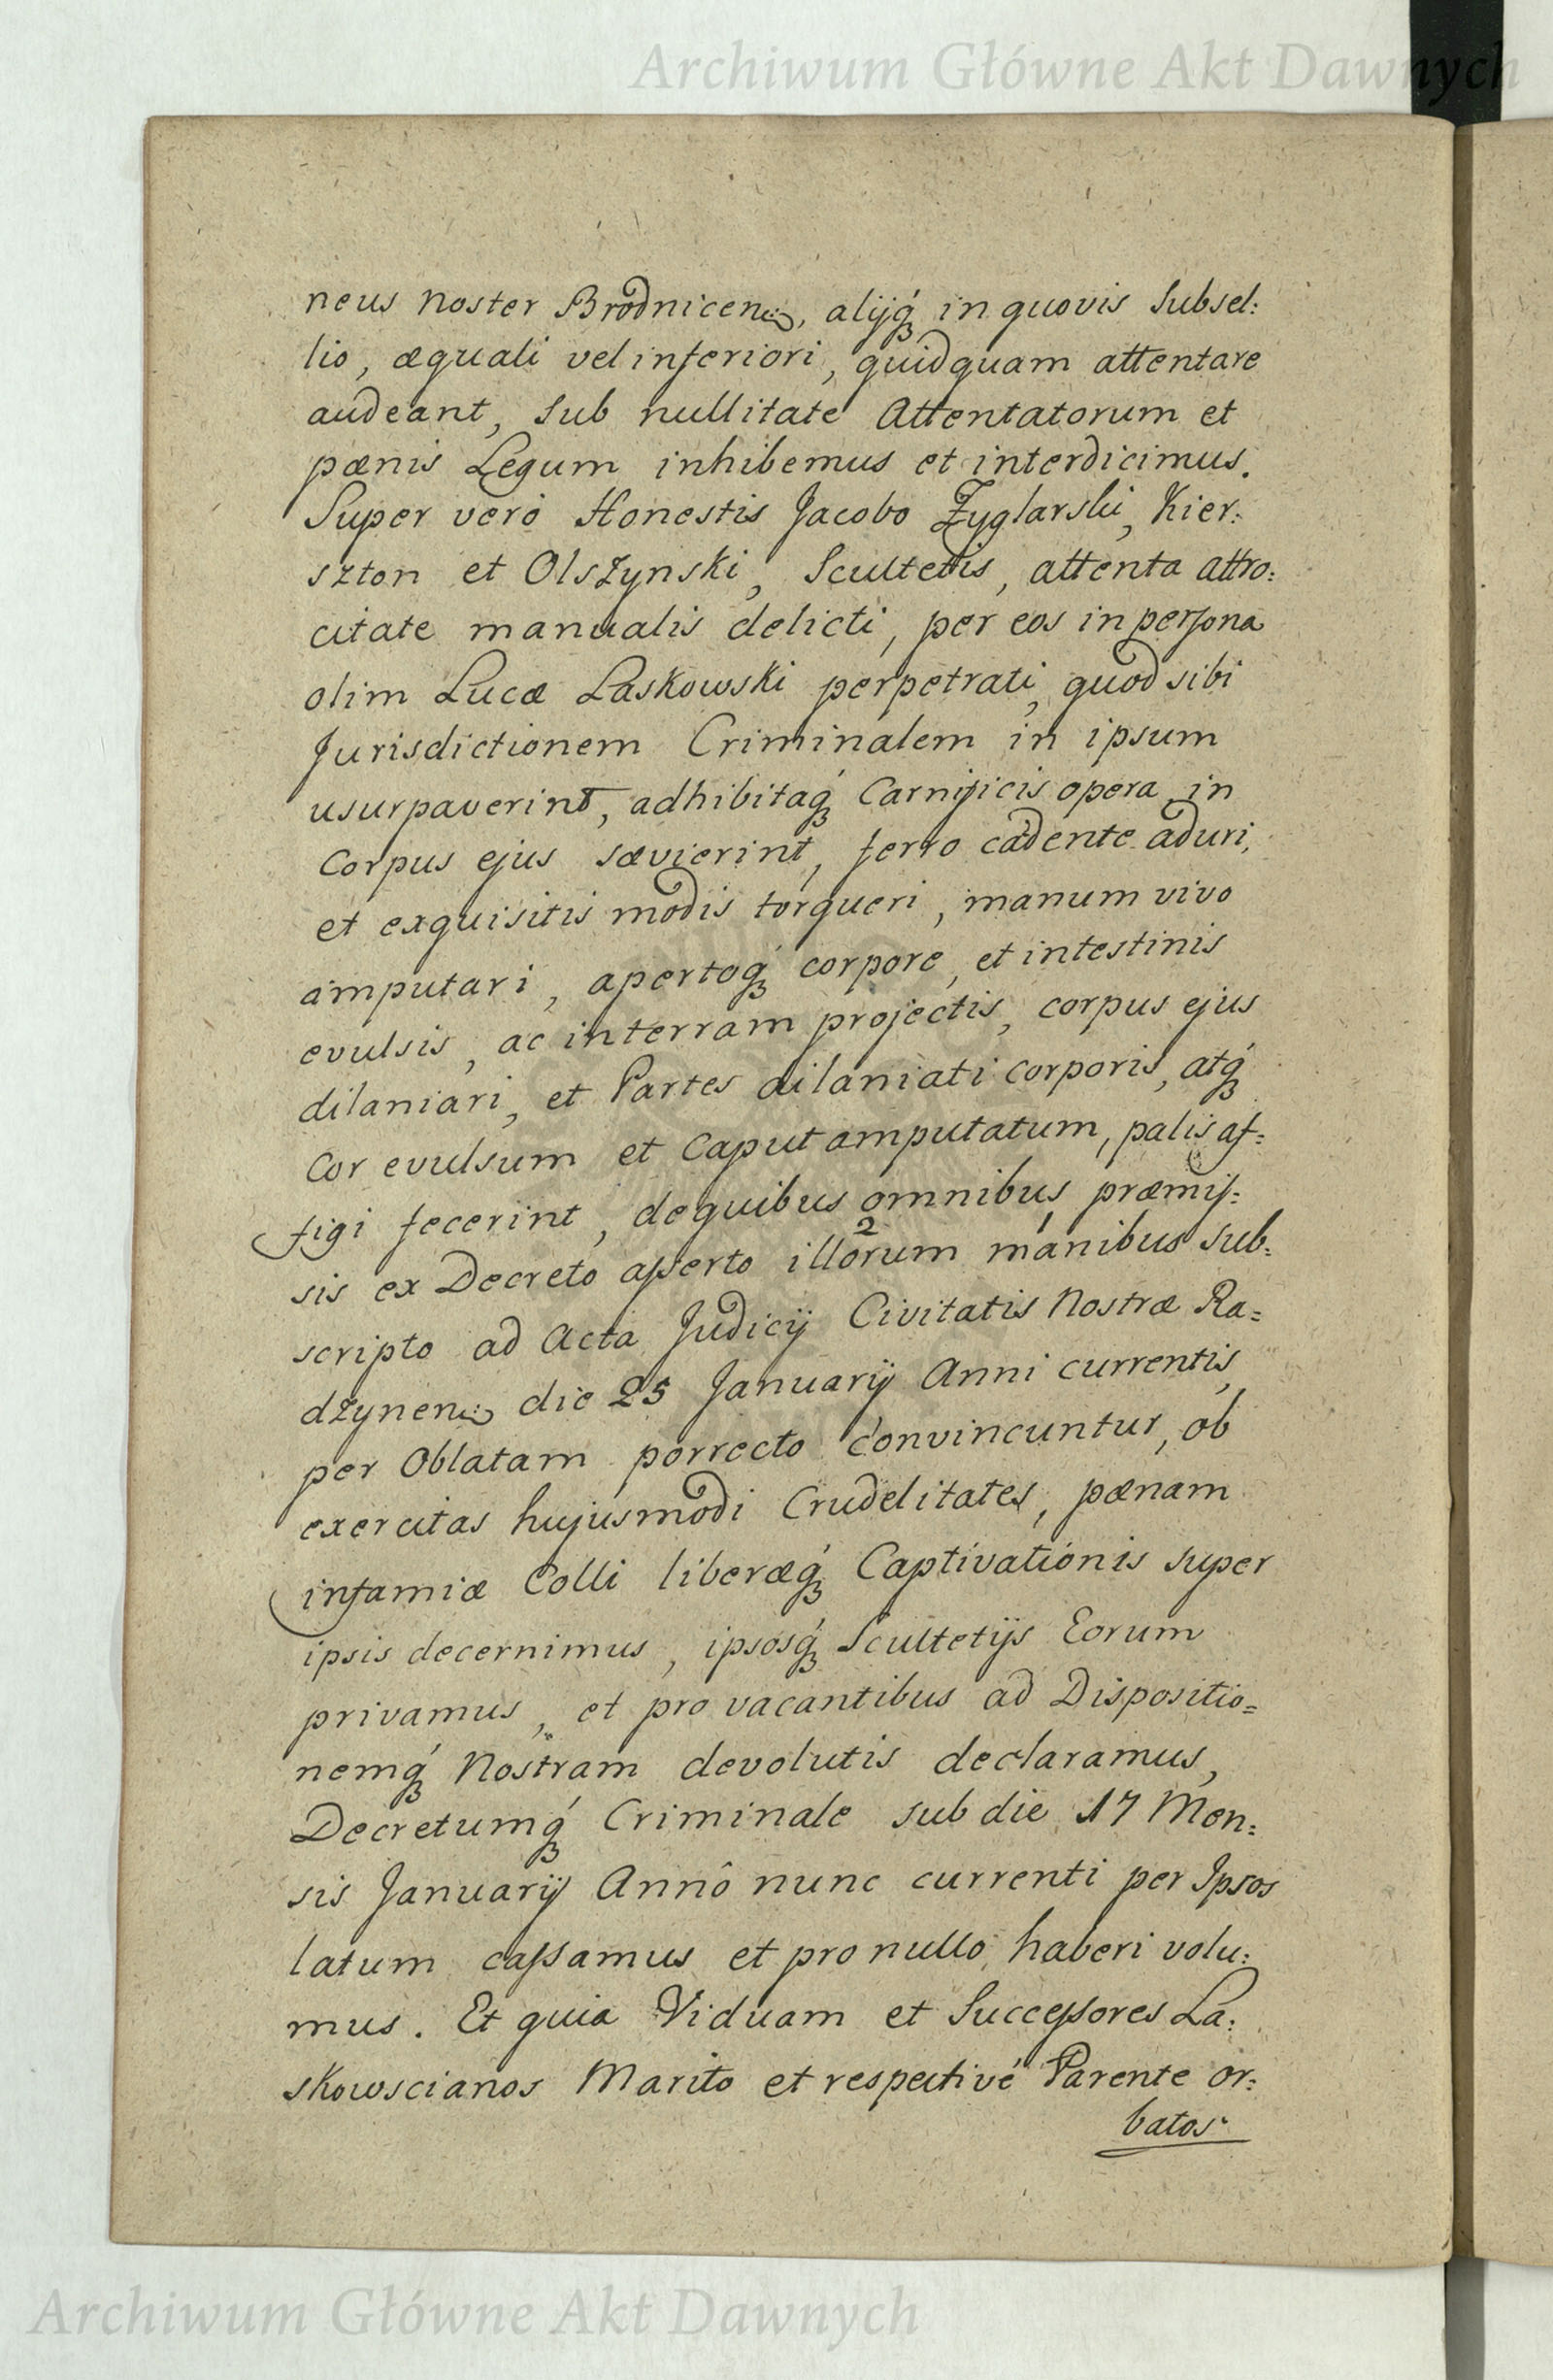 Archiwum Główne Akt Dawnych
neus noster Brodnicen, alijq́ꝫ in quovis Subsel:
lio, æquali vel inferiori, quidquam attentare
audeant, sub nullitate Attentatorum et
pœnis Legum inhibemus et interdicimus.
Super verò Honestis Jacobo Zyglarski, Kier:
szton et Olszynski, Scultetis, attenta attro:
citate manualis delicti, per eos in persona
olim Lucæ Laskowski perpetrati, quod sibi
Jurisdictionem Criminalem in ipsum
usurpaverint, adhibitaq́ꝫ Carnificis opera in
Corpus ejus sævierint, ferro cadente aduri,
et exquisitis modis torqueri, manum vivo
amputari, apertoq́ꝫ corpore, et intestinis
evulsis, ac in terram projectis, corpus ejus
dilaniari, et Partes dilaniati corporis, atq́ꝫ
Cor evulsum et Caput amputatum, palis af:
figi fecerint, de quibus omnibus præmis:
sis ex Decreto asserto illorum manibus sub:
2
scripto ad Acta Judicij Civitatis Nostræ Ra=
dzynen die 25 Januarij Anni currentis,
per Oblatam porrecto convincuntur, ob
exercitas hujusmodi Crudelitates, pœnam
infamiæ Colli liberæq́ꝫ Captivationis super
ipsis decernimus, ipsosq́ꝫ Scultetijs Eorum
privamus, et pro vacantibus ad Dispositio=
nemq́ꝫ Nostram devolutis declaramus,
Decretumq́ꝫ Criminale sub die 17 Men:
sis Januarij Annô nunc currenti per Ipsos
latum cassamus et pro nullo haberi volu:
mus. Et quia Viduam et Successores La:
skowscianos Marito et respectivé Parente or:
batos
Archiwum Główne Akt Dawnych